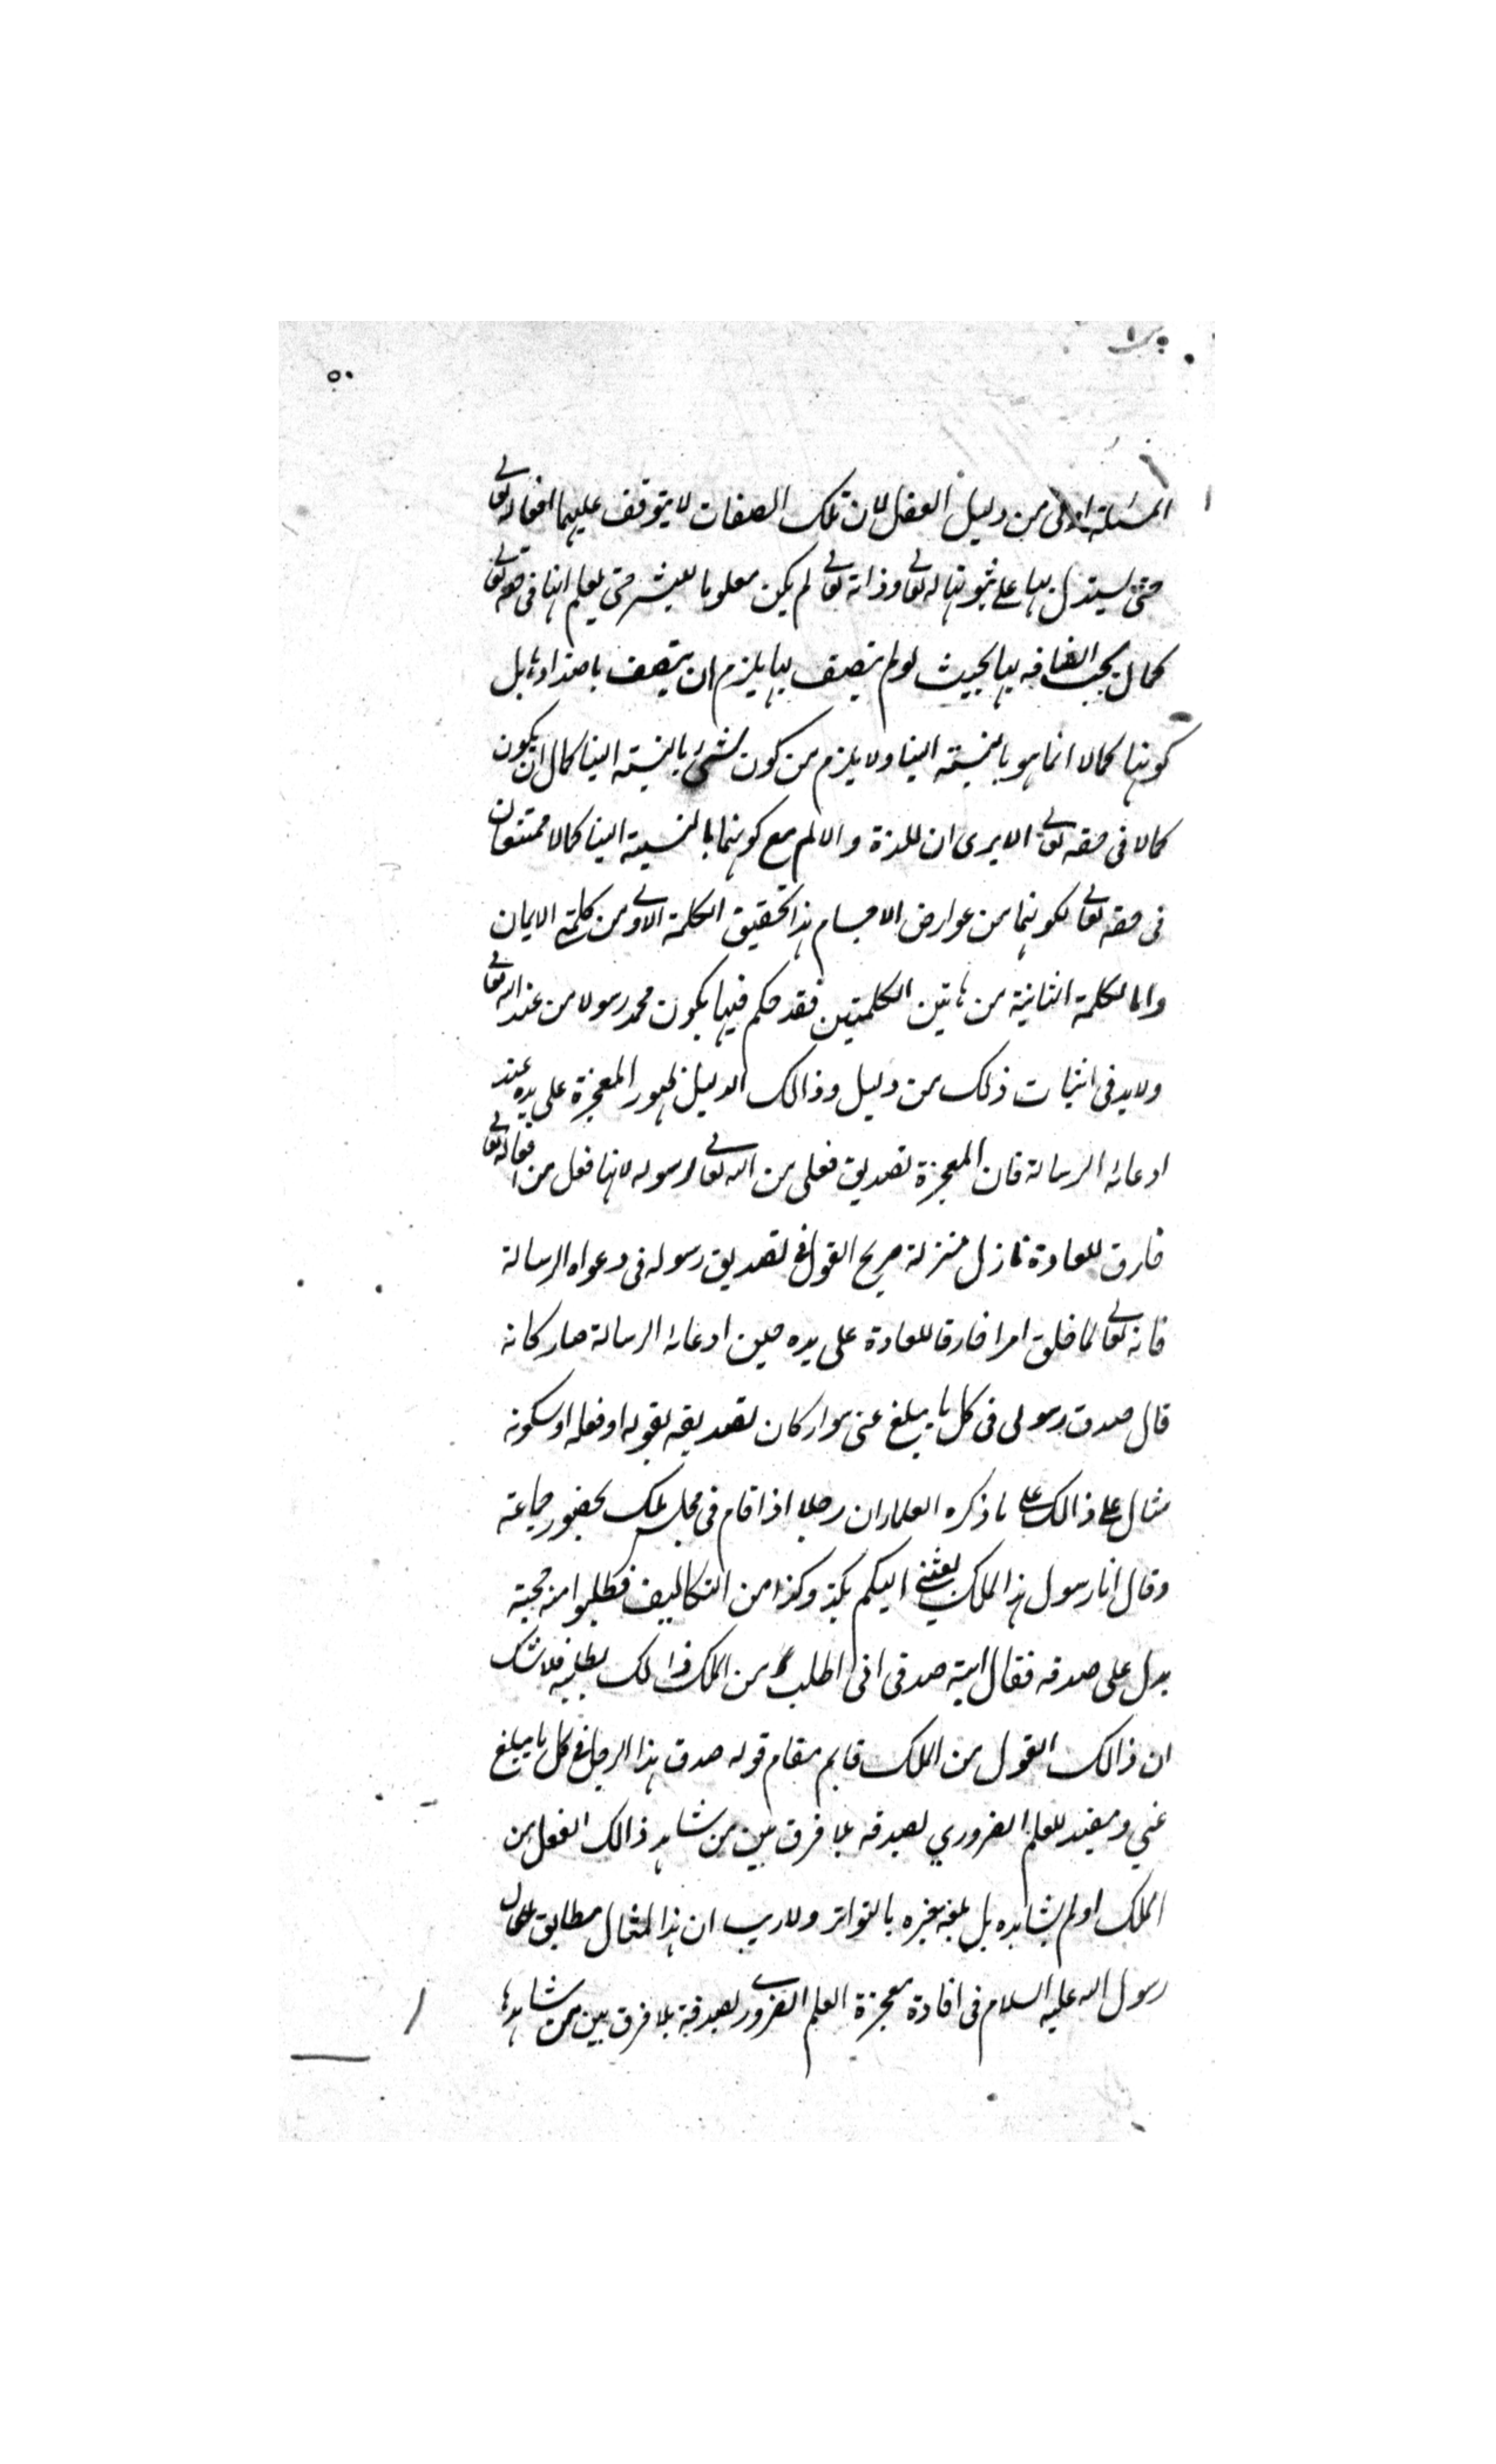 ٥٠
المسئلة اولى من دليل العقل لان تلك الصفات لا يتوقف عليها افعاله تعالى
حتى يستدل بها على ثبوتها له تعالى وذاته تعالى لم يكن معلوما للبشر حتى يعلم انها فى حقه تعالى
كمال يجب اتصافه بها بحيث لو لم يتصف بها يلزم ان يتصف باضدادها بل
كونها كمالا انما هو بالنسبة الينا ولا يلزم من كون شئ بالنسبة الينا كمال ان يكون
كمالا فى حقه تعالى الا يرى ان للذة والالم مع كونهما بالنسبة الينا كمالا ممتنعان
فى حقه تعالى لكونهما من عوارض الاجسام هذا تحقيق الكلمة الاولى من كلمتى الايمان
واما الكلمة الثانية من هاتين الكلمتين فقد حكم فيها بكون محمد رسولا من عند الله تعالى
ولا بد فى اثبات ذلك من دليل وذالك الدليل ظهور المعجزة على يده عند
ادعائه الرسالة فان المعجزة تصديق فعلى من الله تعالى لرسوله لانها فعل من افعاله تعالى
خارق للعادة نازل منزلة صريح القول فى تصديق رسوله فى دعواه الرسالة
فانه تعالى لما خلق امرا خارقا للعادة على يده حين ادعائه الرسالة صار كانه
قال صدق رسولى فى كل ما يبلغ عنى سواء كان تصديقه بقوله او فعله او سكوته
مثال على ذالك على ما ذكره العلماء ان رجلا اذا قام فى مجلس ملك بحضور جماعة
وقال انا رسول هذا الملك بعثنى اليكم بكذ وكذا من التكاليف فطلبوا منه حجة
يدل على صدقه فقال اية صدقى انى اطلب من الملك ذالك بطلبه فلا شك
ان ذالك القول من الملك قايم مقام قوله صدق هذا الرجل فى كل ما يبلغ
عني ومفيد للعلم الضروري لصدقه بلا فرق بين من شاهد ذالك الفعل من
الملك او لم يشاهده بل بلغه خبره بالتواتر ولا ريب ان هذا المثال مطابق لحال
رسول الله عليه السلام فى افادة معجزة العلم الضرورى لصدقة بلا فرق بين من شاهدها